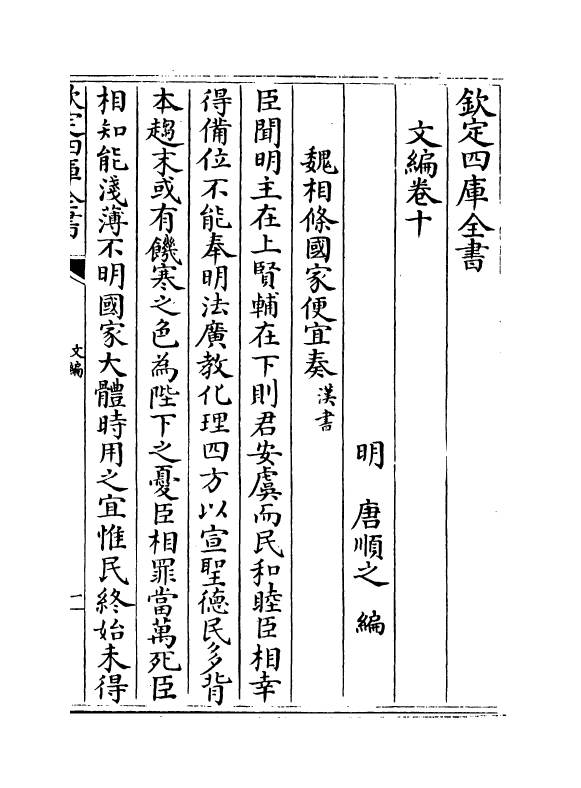 欽定四庫全書
文編卷十
明 唐順之 編
魏相條國家便宜奏 漢書
臣聞明主在上賢輔在下則君安虞而民和睦臣相幸
得備位不能奉明法廣教化理四方以宣聖德民多背
本趨末或有饑寒之色為陛下之憂臣相罪當萬死臣
相知能淺薄不明國家大體時用之宜惟民終始未得
欽定四庫全書
文編